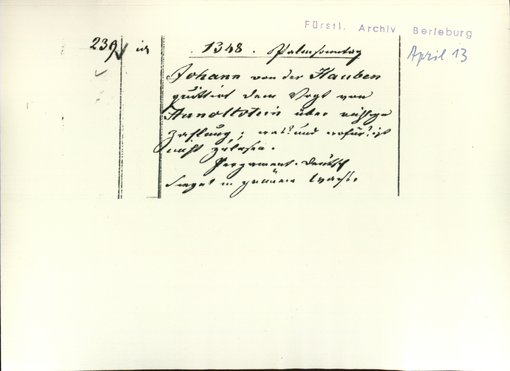 Fürstl. Archiv Berleburg
April 13
239 id
1348. Palmsonntag
Johann von der Hauben
quittirt dem Vogt von
Hunoltstein über richtige
Zahlung; was? und wofür? ist
nicht zu lesen.
Pergament. Deutsch
Siegel in grünem Wachs.